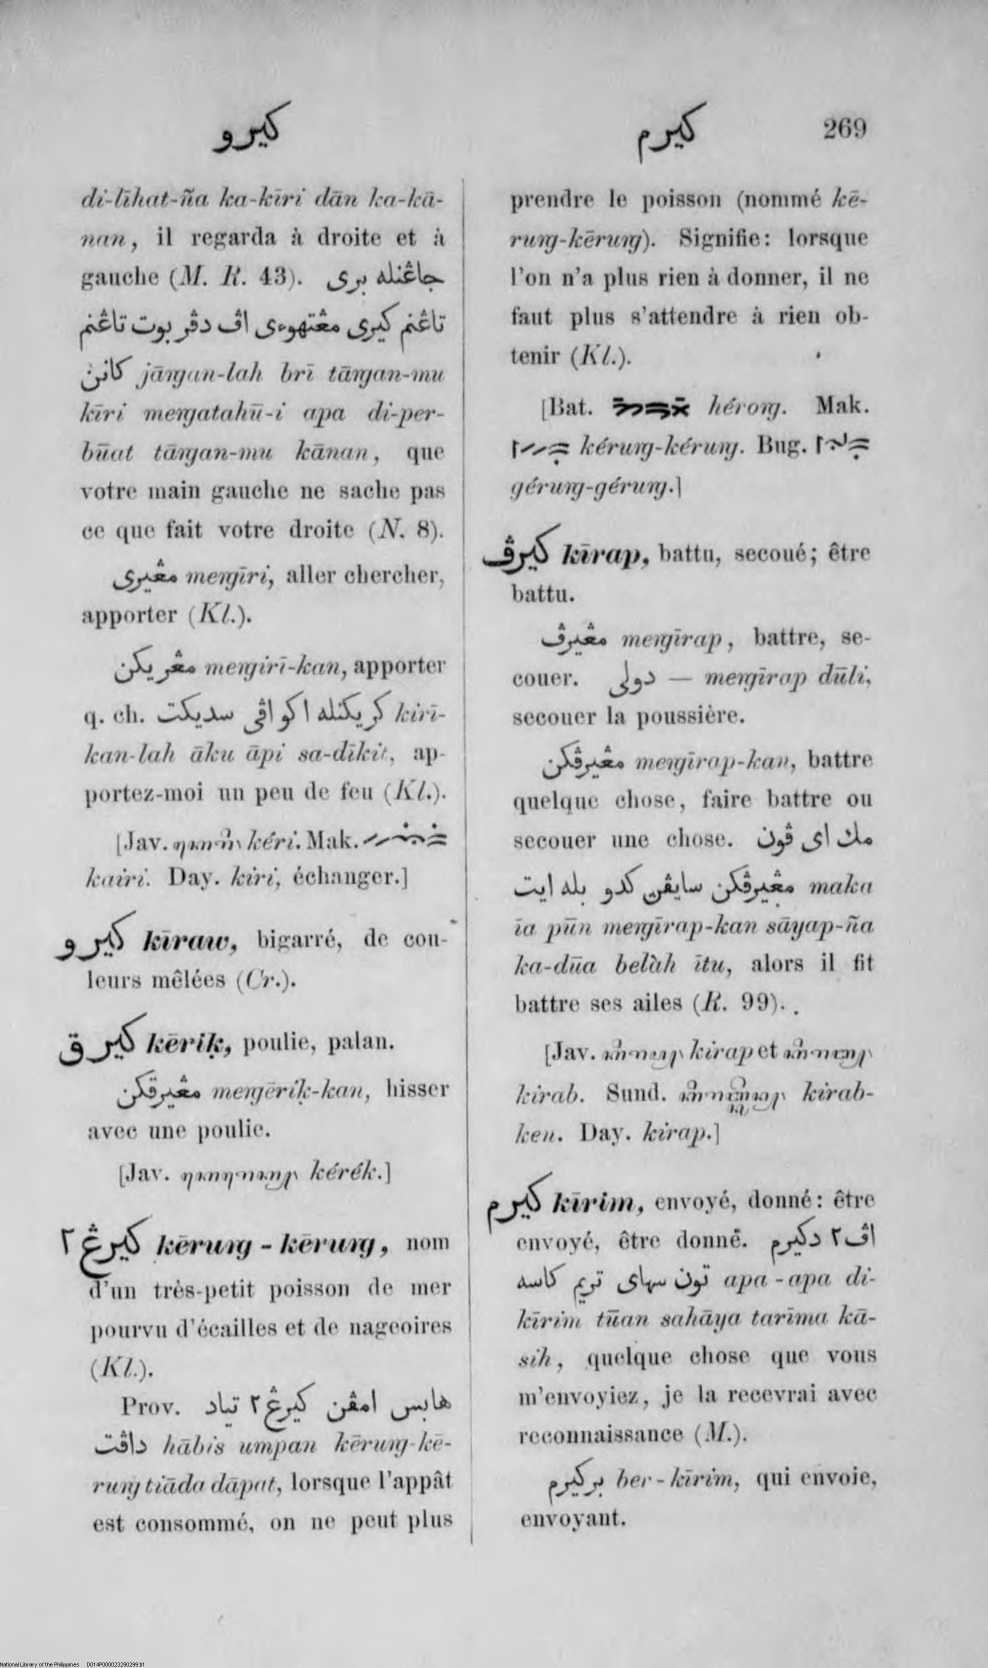 كيرو
كيرم 269
di-līhat-ña ka-kīri dān ka-kā-
nan, il regarda à droite et à
gauche (M. R. 43). جاڠنله بري
تاڠنم كيري مڠتهوءي اڤ دڤربوت تاڠنم
كانن jāṅgan-lah brī tāṅgan-mu
kīri meṅgatahū-i apa di-per-
būat tāṅgan-mu kānan, que
votre main gauche ne sache pas
ce que fait votre droite (N. 8).
مڠيري meṅgīri, aller chercher,
apporter (Kl.).
مڠريكن meṅgirī-kan, apporter
q. ch. كريكنله اكو اڤي سديكت kirī-
kan-lah āku āpi sa-dīkit, ap-
portez-moi un peu de feu (Kl.).
[Jav. kéri. Mak.
kairi. Day. kiri, échanger.]
كيرو kīraw, bigarré, de cou-
leurs mêlées (Cr.).
كيرق kēriḳ, poulie, palan.
مڠيرقكن meṅgēriḳ-kan, hisser
avec une poulie.
[Jav. kérék.]
كيرڠ٢ kēruṅg-kēruṅg, nom
d'un très-petit poisson de mer
pourvu d'écailles et de nageoires
(Kl.).
Prov. هابس امڤن كيرڠ٢ تياد
داڤت hābis umpan kēruṅg-kē-
ruṅg tiāda dāpat, lorsque l'appât
est consommé, on ne peut plus
prendre le poisson (nommé kē-
ruṅg-kēruṅg). Signifie: lorsque
l'on n'a plus rien à donner, il ne
faut plus s'attendre à rien ob-
tenir (Kl.).
[Bat. héroṅg. Mak.
kéruṅg-kéruṅg. Bug.
géruṅg-géruṅg.]
كيرڤ kīrap, battu, secoué; être
battu.
مڠيرڤ meṅgīrap, battre, se-
couer. دولي — meṅgīrap dūli,
secouer la poussière.
مڠيرڤكن meṅgīrap-kan, battre
quelque chose, faire battre ou
secouer une chose. مك اي ڤون
مڠيرڤكن سايڤن كدو بله ايت maka
īa pūn meṅgīrap-kan sāyap-ña
ka-dūa belàh ītu, alors il fit
battre ses ailes (R. 99).
[Jav. kirap et
kirab. Sund. kirab-
ken. Day. kirap.]
كيرم kīrim, envoyé, donné: être
envoyé, être donné. اڤ٢ دكيرم
تون سهاي تريم كاسه apa-apa di-
kīrim tūan sahāya tarīma kā-
sih, quelque chose que vous
m'envoyiez, je la recevrai avec
reconnaissance (M.).
بركيرم ber-kīrim, qui envoie,
envoyant.
National Library of the Philippines